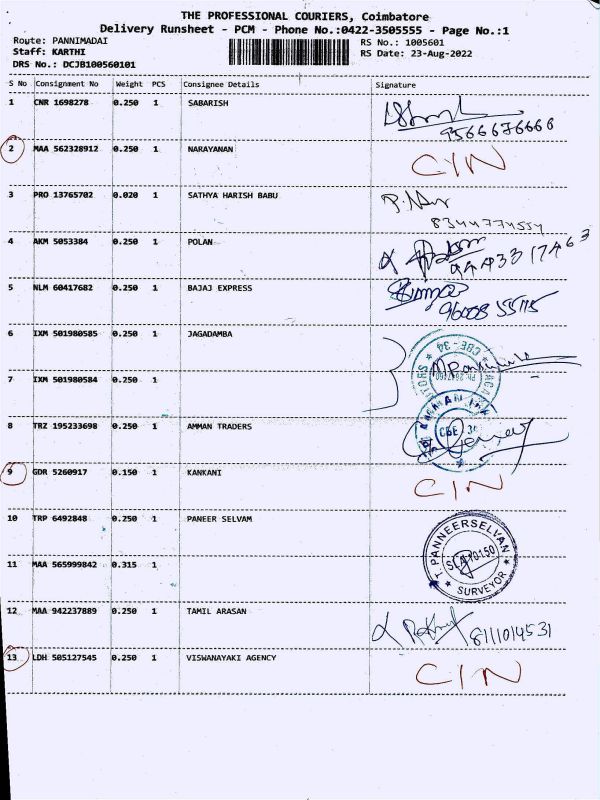 THE PROFESSIONAL COURIERS, Coimbatore
Delivery Runsheet - PCM - Phone No.:0422-3505555 - Page No.:1
Route: PANNIMADAI
Staff: KARTHI
DRS No.: DCJB100560101
RS No.: 1005601
RS Date: 23-Aug-2022
S No Consignment No Weight PCS Consignee Details Signature
1 CNR 1698278 0.250 1 SABARISH
9566676666
2 MAA 562328912 0.250 1 NARAYANAN C/N
3 PRO 13765702 0.020 1 SATHYA HARISH BABU
8344774554
4 AKM 5053384 0.250 1 POLAN
5 NLM 60417682 0.250 1 BAJAJ EXPRESS
6 IXM 501980585 0.250 1 JAGADAMBA
CBE - 34
7 IXM 501980584 0.250 1
8 TRZ 195233698 0.250 1 AMMAN TRADERS
CBE
9 GDR 5260917 0.150 1 KANKANI C/N
10 TRP 6492848 0.250 1 PANEER SELVAM
T. PANNEERSELVAN
SURVEYOR
11 MAA 565999842 0.315 1
12 MAA 942237889 0.250 1 TAMIL ARASAN 8111014531
13 LDH 505127545 0.250 1 VISWANAYAKI AGENCY C/N